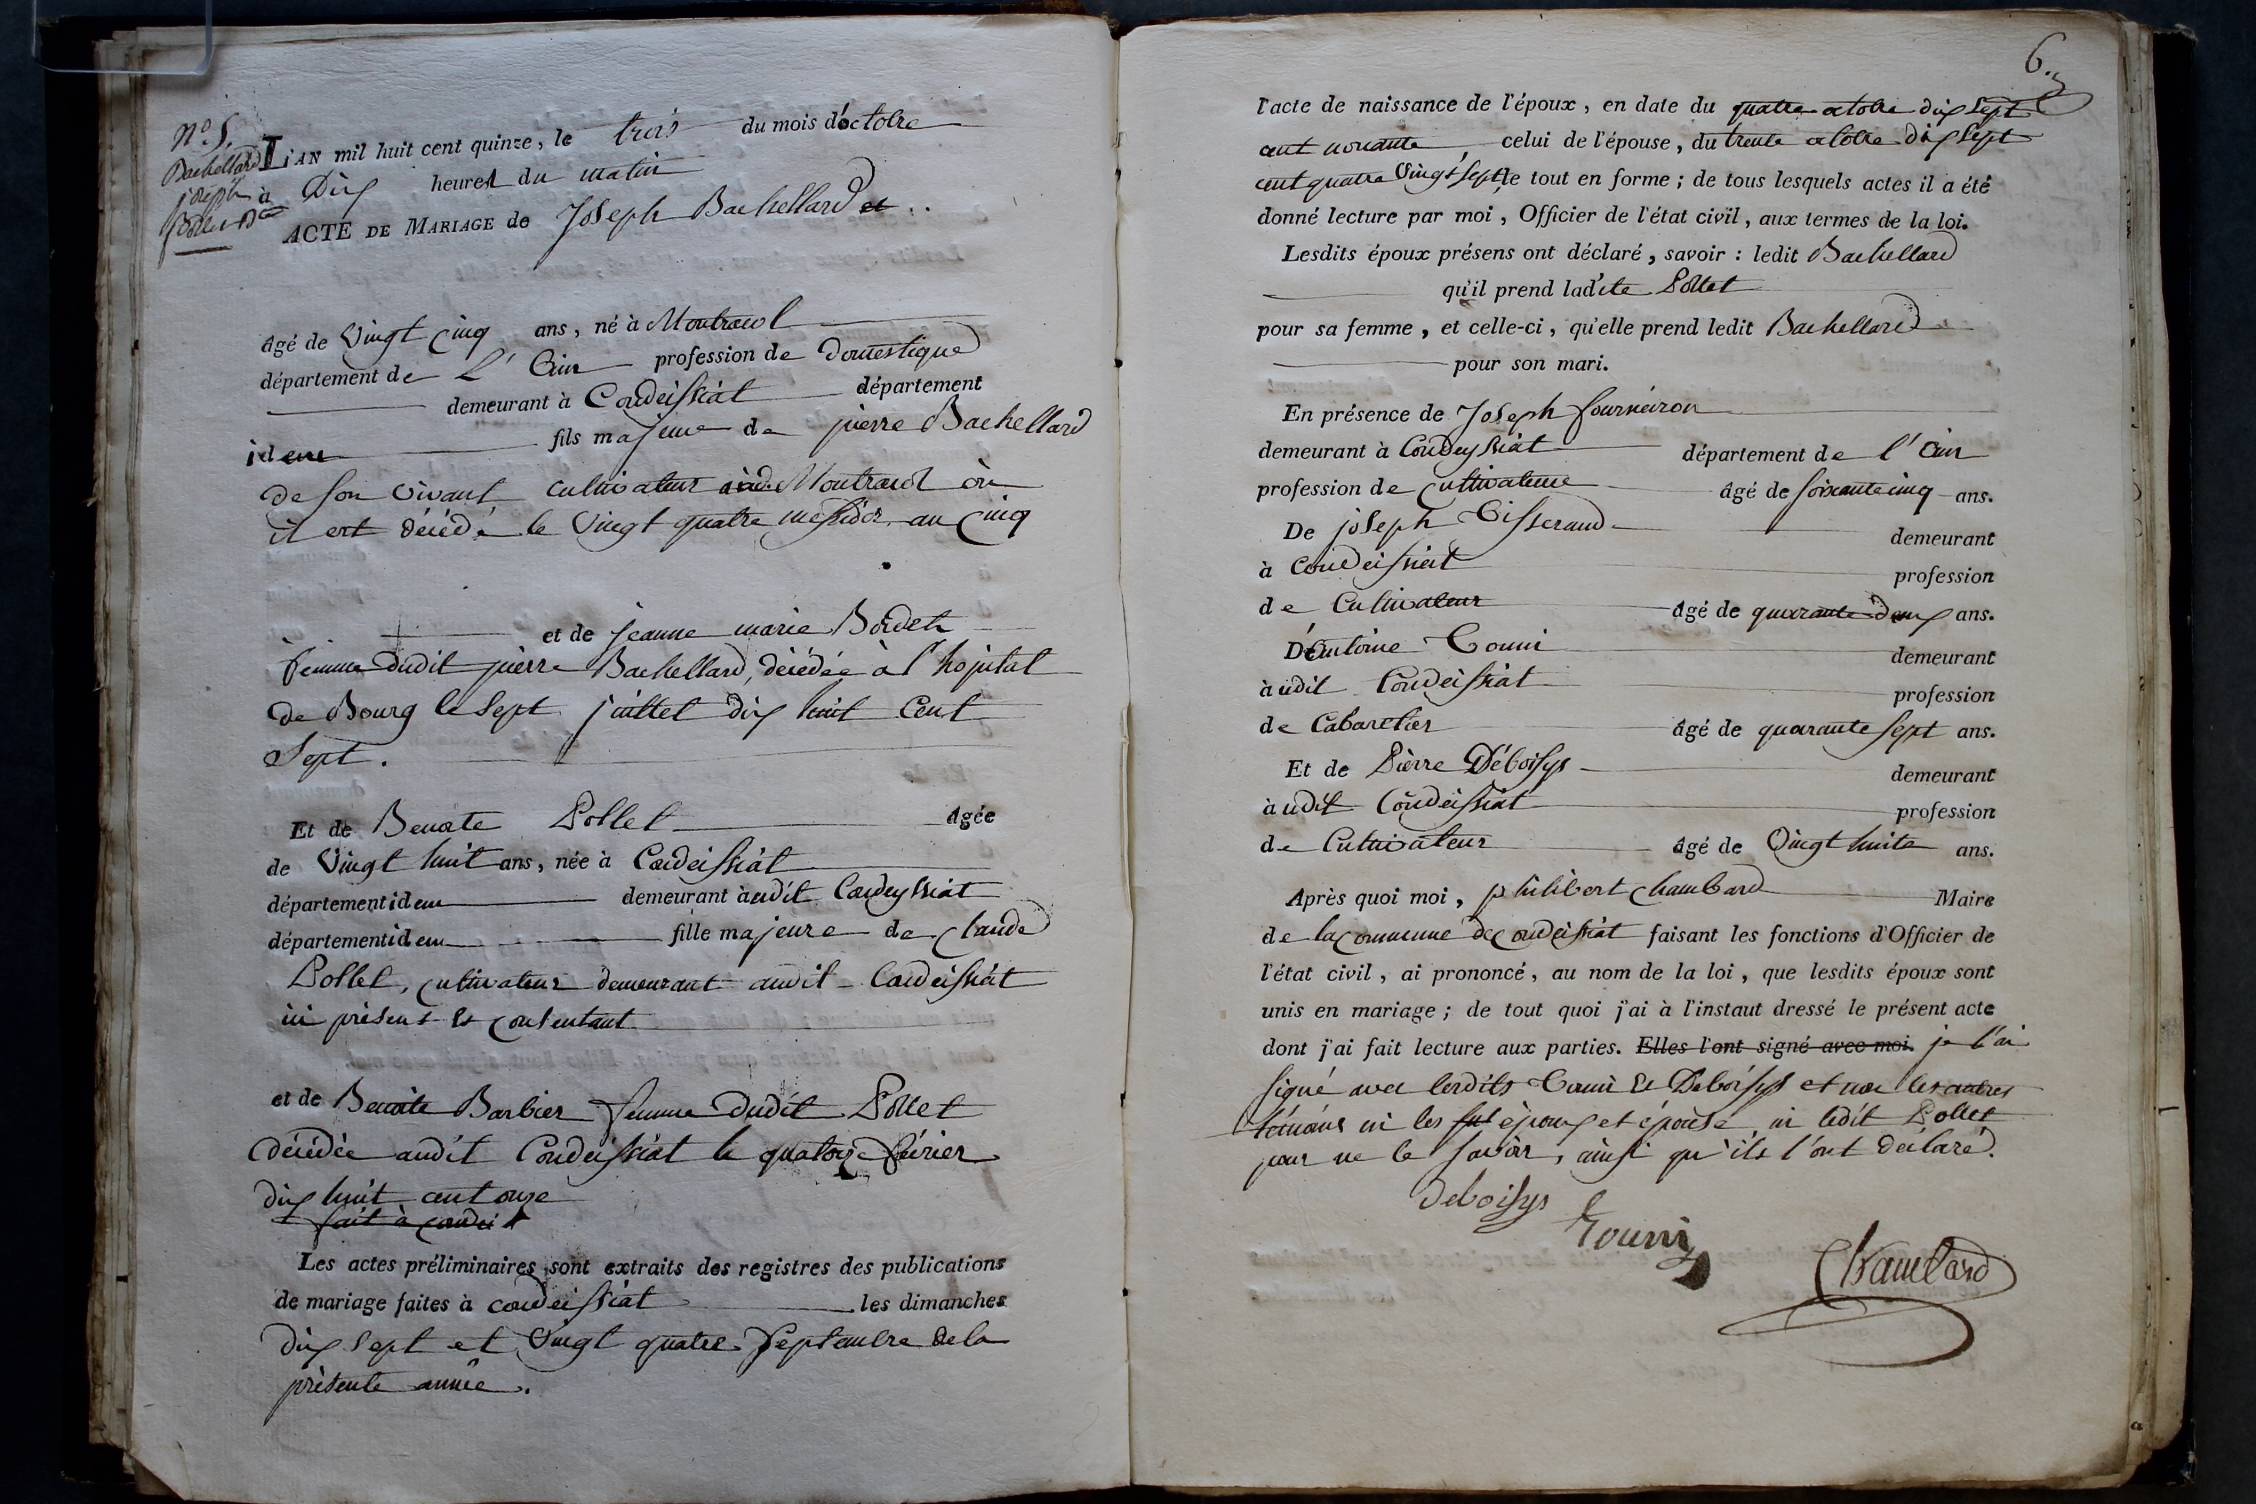 N° 5.
Bachellard
joseph
Pollet B.te
L'AN mil huit cent quinze, le trois du mois d'octobre
à Dix heures du matin
ACTE DE MARIAGE de Joseph Bachellard et ..
âgé de Vingt Cinq ans, né à Montracol
département de L'Ain profession de Domestique
demeurant à Condeissiat département
idem fils majeur de pierre Bachellard
de son vivant Cultivateur à Montracol où
il est décédé le Vingt quatre messidor an Cinq
et de jeanne marie
femme dudit pierre Bachellard, décédée à l'hopital
de Bourg le Sept juillet dix huit Cent
Sept.
Et de Benoite Pollet âgée
de Vingt huit ans, née à Condeissiat
département idem demeurant audit Condeyssiat
département idem fille majeure de Claude
Pollet, Cultivateur demeurant audit Condeissiat
ici présent et Consentant
et de Benoite Barbier femme dudit Pollet
décédée audit Condeissiat le quatorze février
dix huit cent onze
fait à Condei
Les actes préliminaires sont extraits des registres des publications
de mariage faites à condeissiat les dimanches
dix sept et Vingt quatre Septembre de la
présente année.
6.
l'acte de naissance de l'époux, en date du quatre octobre dix Sept
cent nonante, celui de l'épouse, du trente octobre dix Sept
cent quatre Vingt Sept le tout en forme ; de tous lesquels actes il a été
donné lecture par moi, Officier de l'état civil, aux termes de la loi.
Lesdits époux présens ont déclaré, savoir : ledit Bachellard
qu'il prend ladite Pollet
pour sa femme, et celle-ci, qu'elle prend ledit Bachellard
pour son mari.
En présence de Joseph fourneiron
demeurant à Condeyssiat département de l'Ain
profession de Cultivateur âgé de soixante cinq ans.
De joseph Tisserand demeurant
à Condeissiat profession
de Cultivateur âgé de quarante deux ans.
D'Antoine Convi demeurant
à udit Condeissiat profession
de Cabaretier âgé de quarante sept ans.
Et de Pierre Déboisys demeurant
à udit Condeissiat profession
de Cultivateur âgé de Vingt huite ans.
Après quoi moi, philibert Chambard Maire
de la Commune de Condeissiat faisant les fonctions d'Officier de
l'état civil, ai prononcé, au nom de la loi, que lesdits époux sont
unis en mariage ; de tout quoi j'ai à l'instant dressé le présent acte
dont j'ai fait lecture aux parties. Elles l'ont signé avec moi. je l'ai
signé avec lesdits et Deboisys et non les autres
témoins ni les époux et épouse, ni ledit Pollet
pour ne le savoir, ainsi qu'ils l'ont déclaré.
deboisys
Chambard